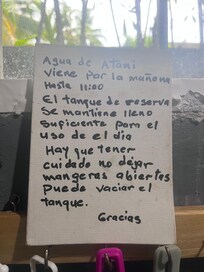 Agua de Atoni
viene por la mañana
Hasta 11:00
El tanque de reserva
se mantiene lleno
suficiente para el
uso de el dia
Hay que tener
cuidado no dejar
mangeras abiertas
Puede vaciar el
tanque.
Gracias